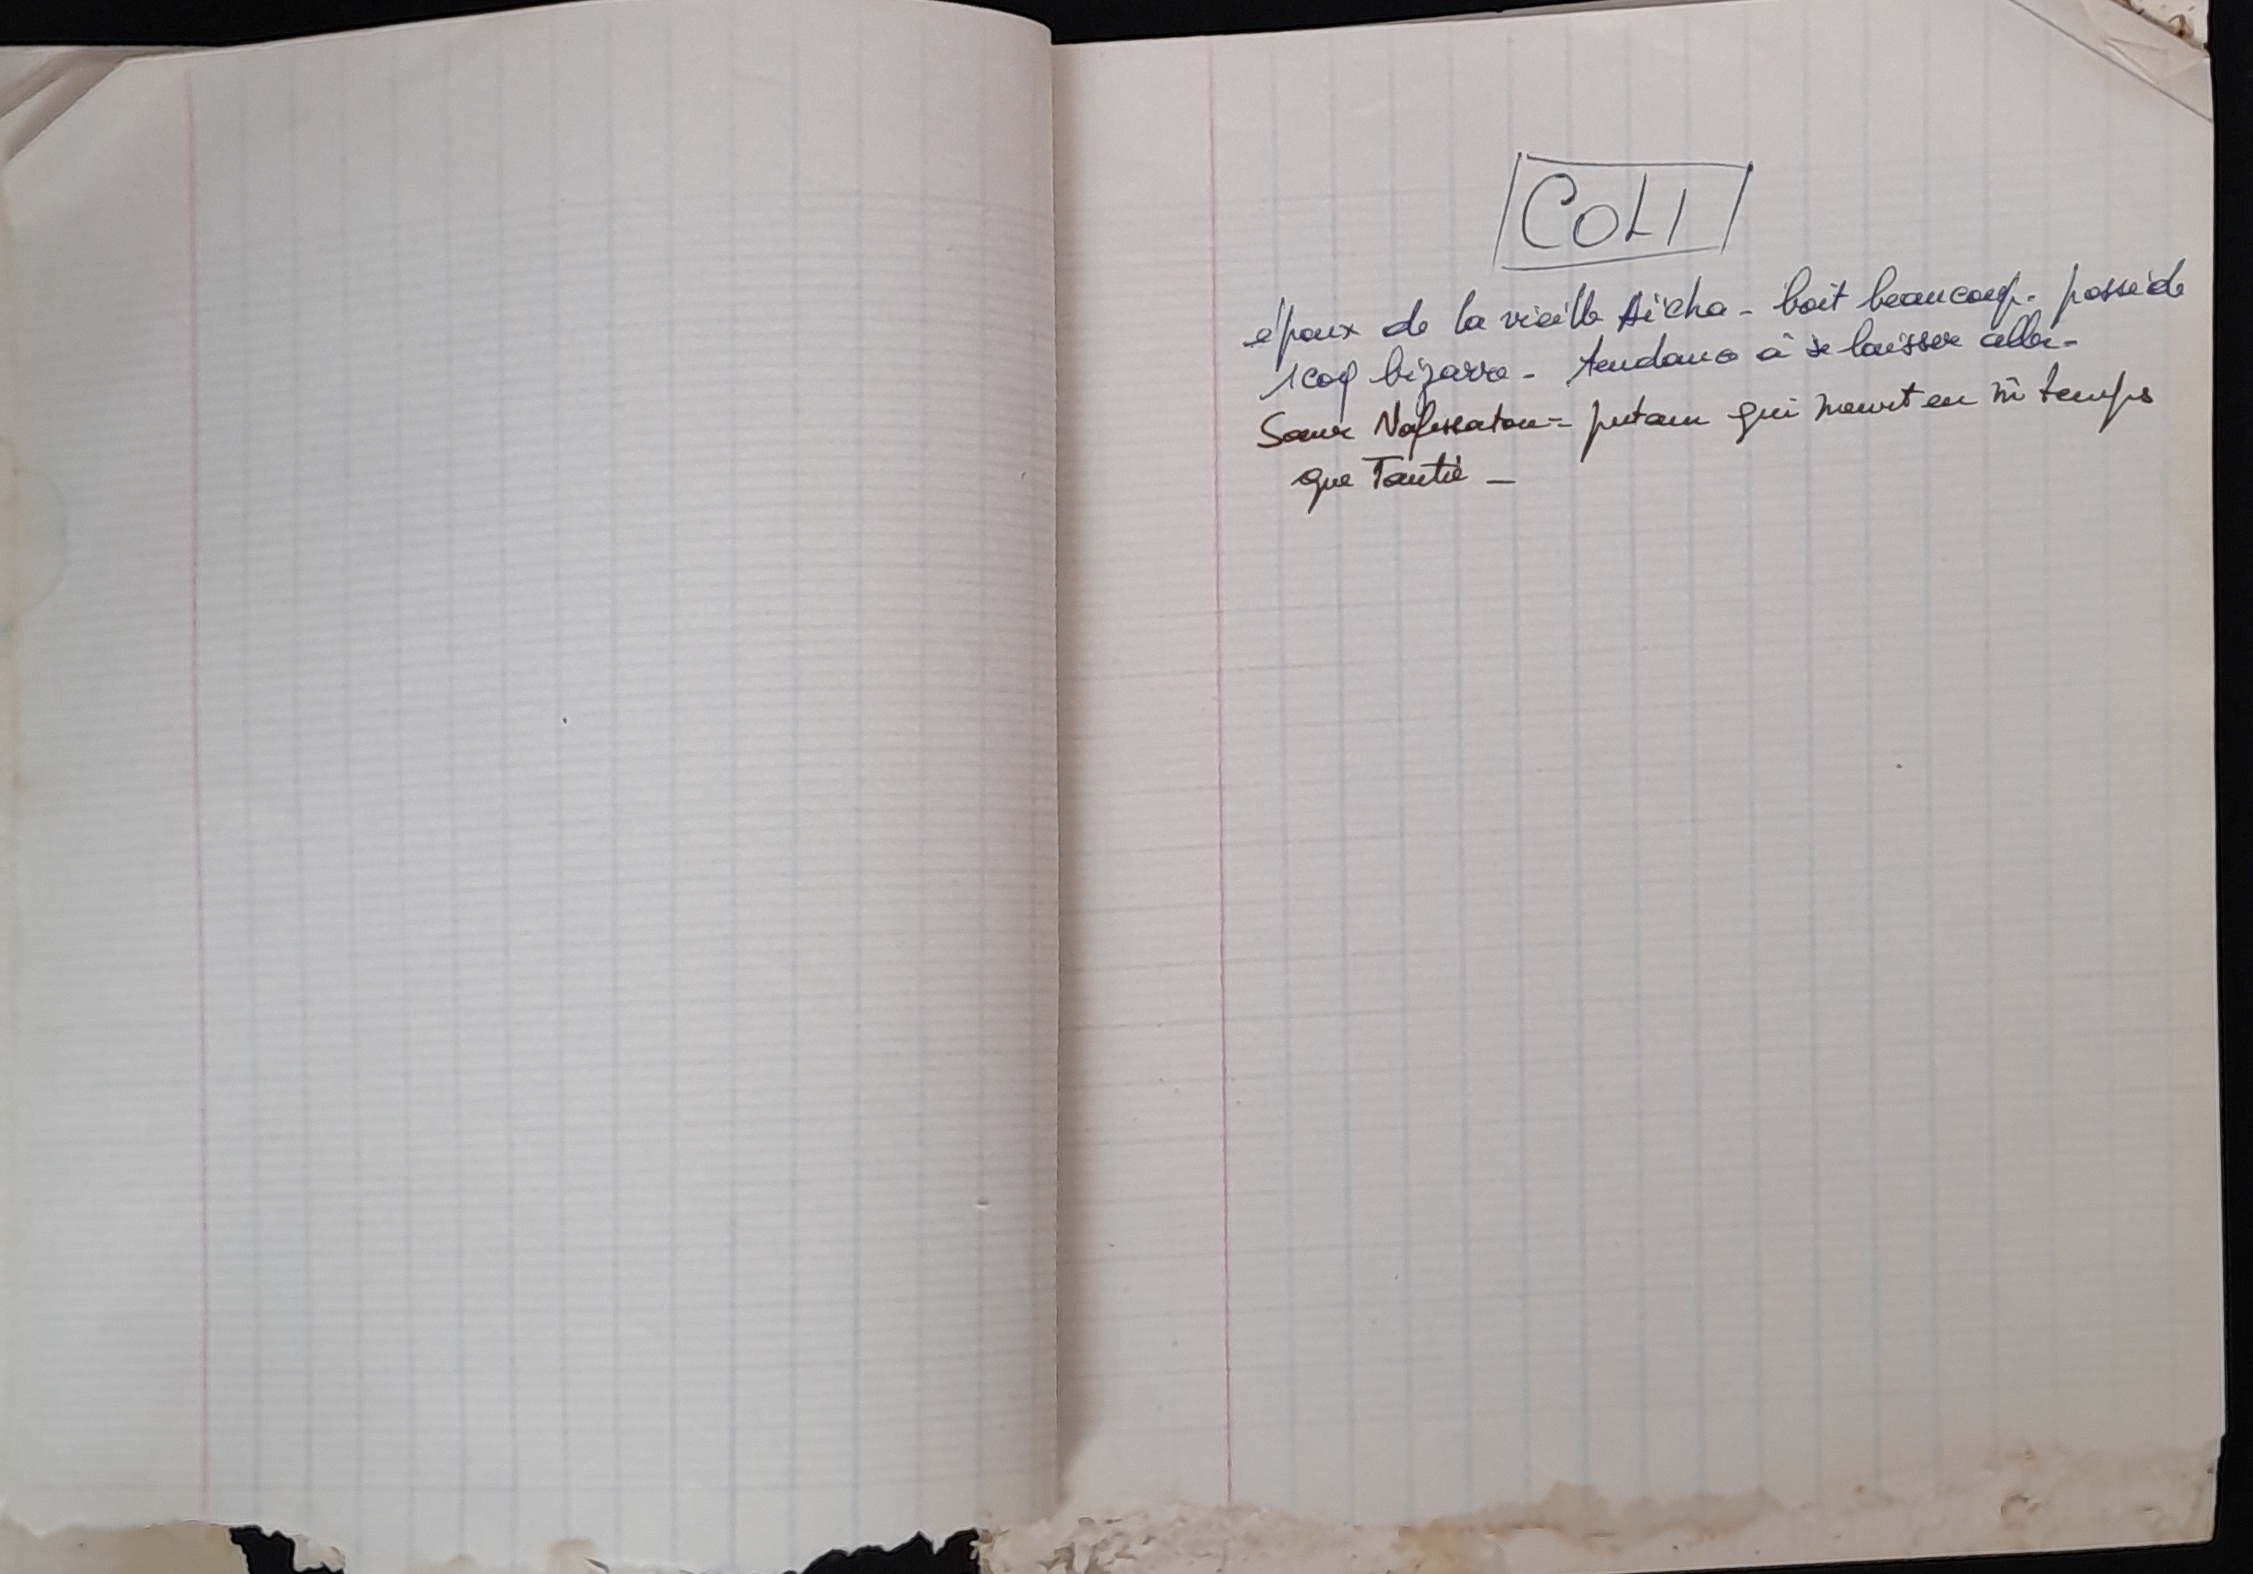 COLI
époux de la vieille Aïcha - boit beaucoup - possède
1 coq bizarre - tendance à se laisser aller -
Sœur Nafissatou = putain qui meurt en m̂ temps
que Tantie -